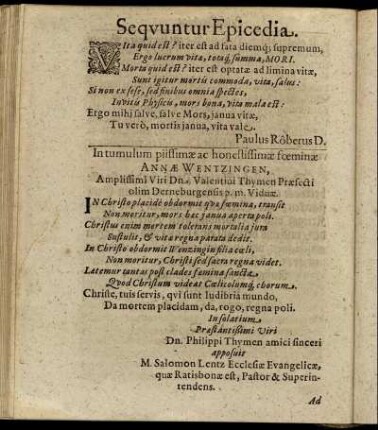 Seqvuntur Epicedia.
VIta quid est? iter est ad fata diemq; supremum,
Ergo lucrum vita, totaq́; summa, MORI.
Mors quid est? iter est optatæ ad limina vitæ,
Sunt igitur mortis commoda, vita, salus:
Si non ex sese, sed finibus omnia spectes,
Invitis Physicis, mors bona, vita mala est:
Ergo mihi salve, salve Mors, janua vitæ,
Tu verò, mortis janua, vita vale.
Paulus Röberus D.
In tumulum piissimæ ac honestissimæ fœminæ
ANNÆ WENTZINGEN,
Amplissimi Viri Dn. Valentini Thymen Præfecti
olim Derneburgensis p. m. Viduæ.
IN Christo placidè obdormit qvæ fœmina, transit
Non moritur, mors hæc janua aperta poli.
Christus enim mortem tolerans mortalia jura
Sustulit, & vitæ regna parata dedit.
In Christo obdormit Wenzingin filia cœli,
Non moritur, Christi sed sacra regna videt.
Lætemur tantas post clades fœmina sancta
Qvod Christum videas Cœlicolumq́; chorum.
Christe, tuis servis, qvi sunt ludibria mundo,
Da mortem placidam, da, rogo, regna poli.
In solatium
Præstantissimi Viri
Dn. Philippi Thymen amici sinceri
apposuit
M. Salomon Lentz Ecclesiæ Evangelicæ,
quæ Ratisbonæ est, Pastor & Superin-
tendens.
Ad